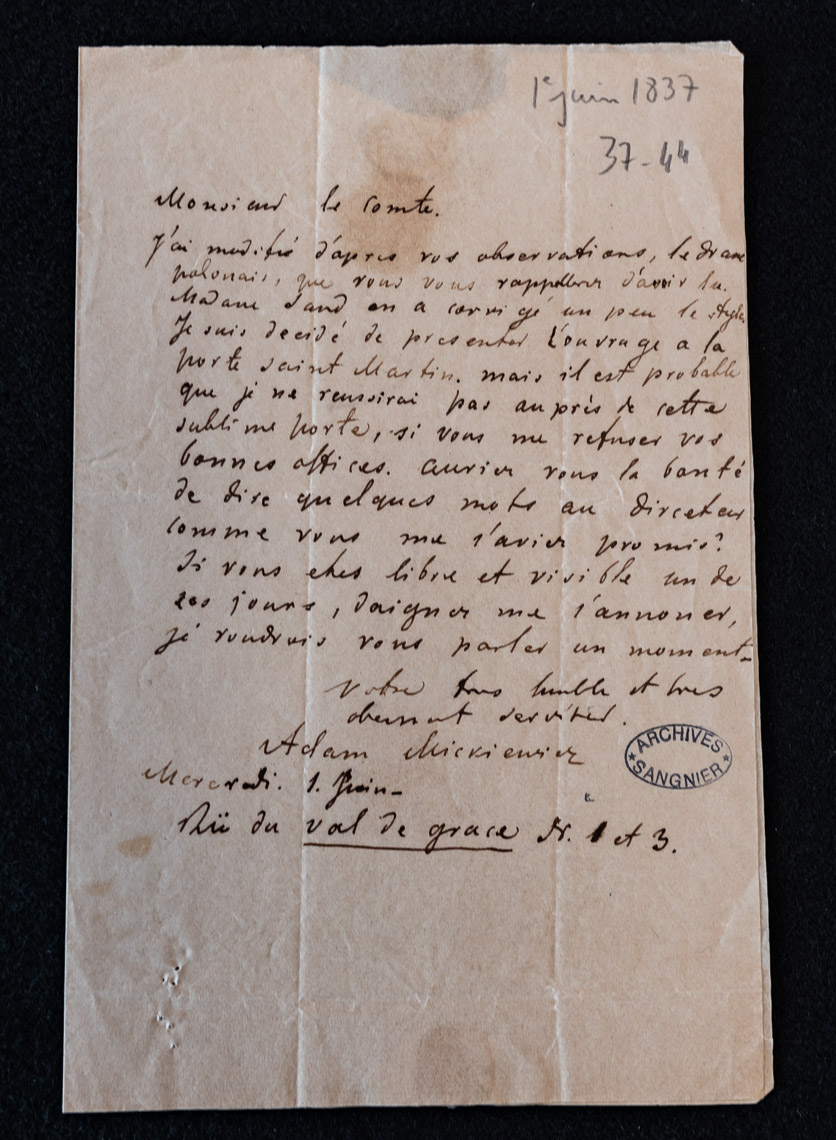 1er juin 1837
37-44
Monsieur le comte.
J'ai modifié d'apres vos observations, le drame
polonais, que vous vous rappellerez d'avoir lu.
Madame Sand en a corrigé un peu le style
Je suis decidé de presenter l'ouvrage a la
porte Saint Martin. mais il est probable
que je ne reussirai pas auprès de cette
sublime porte, si vous me refusez vos
bonnes offices. auriez vous la bonté
de dire quelques mots au directeur
comme vous me l'aviez promis?
Si vous etes libre et visible un de
ces jours, daignez me l'annoncer,
je voudrois vous parler un moment-
Votre tres humble et tres
obeissant serviteur.
Adam Mickiewicz
Mercredi. 1. Juin-
Rüe du val de grace N. 1 et 3.
ARCHIVES
SANGNIER